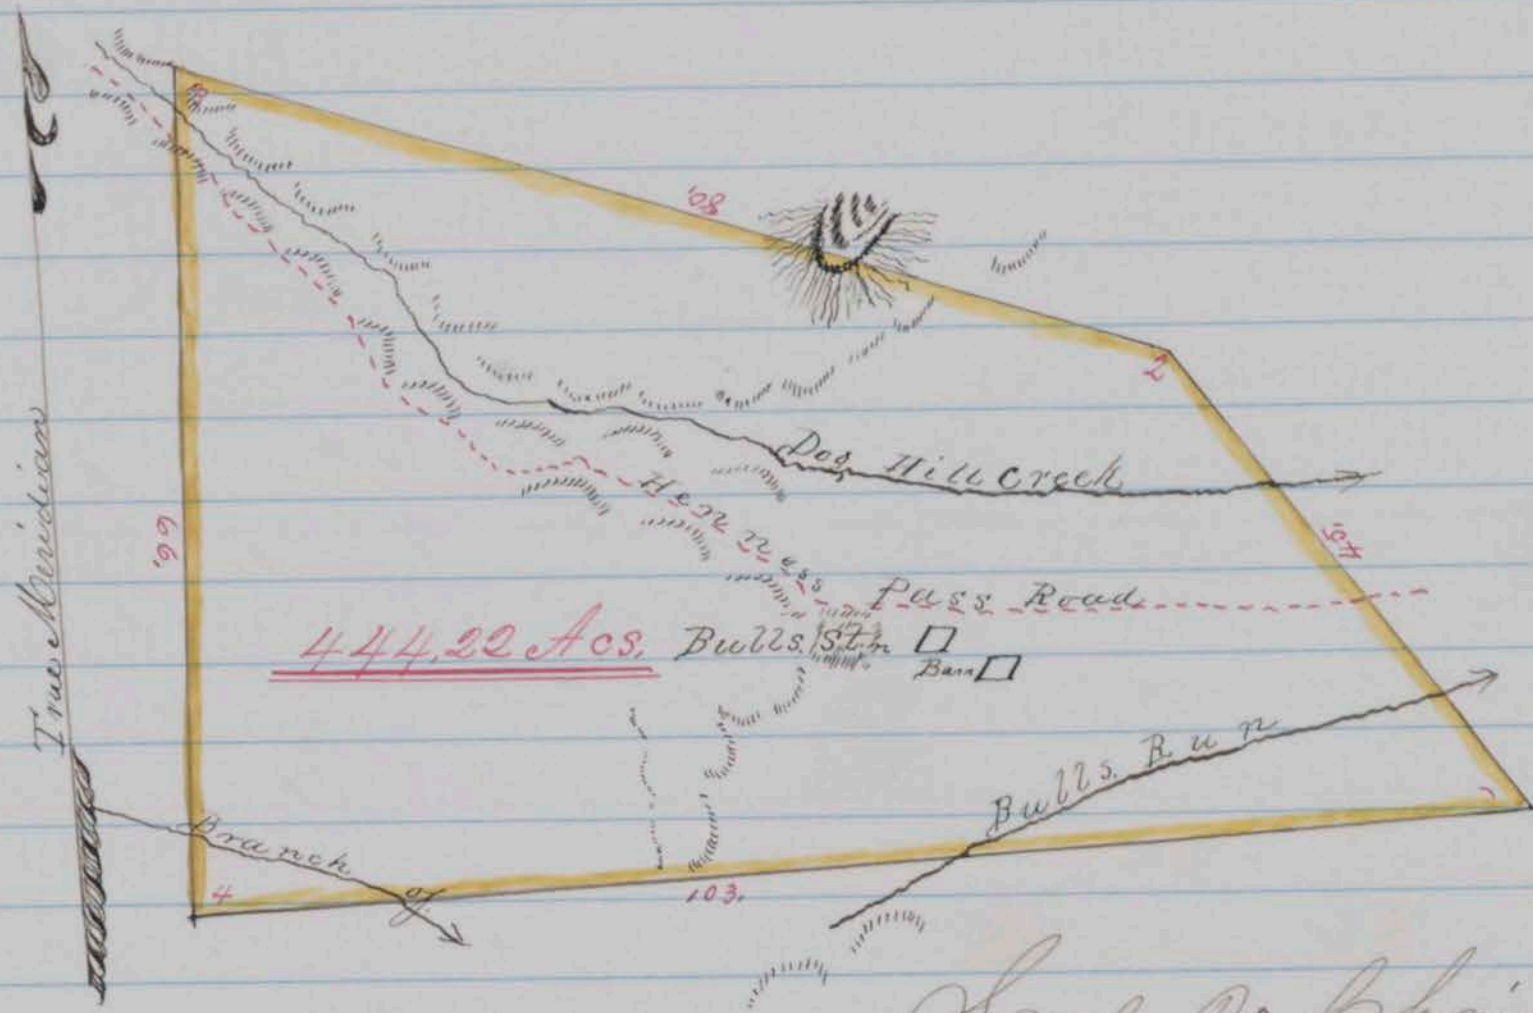 True Meridian
3
80.
2
Dog Hill Creek
66.
45.
Henness Pass Road
444.22 Acs.
Bulls Stn
Barn
Bulls Run
Branch of
4
103.